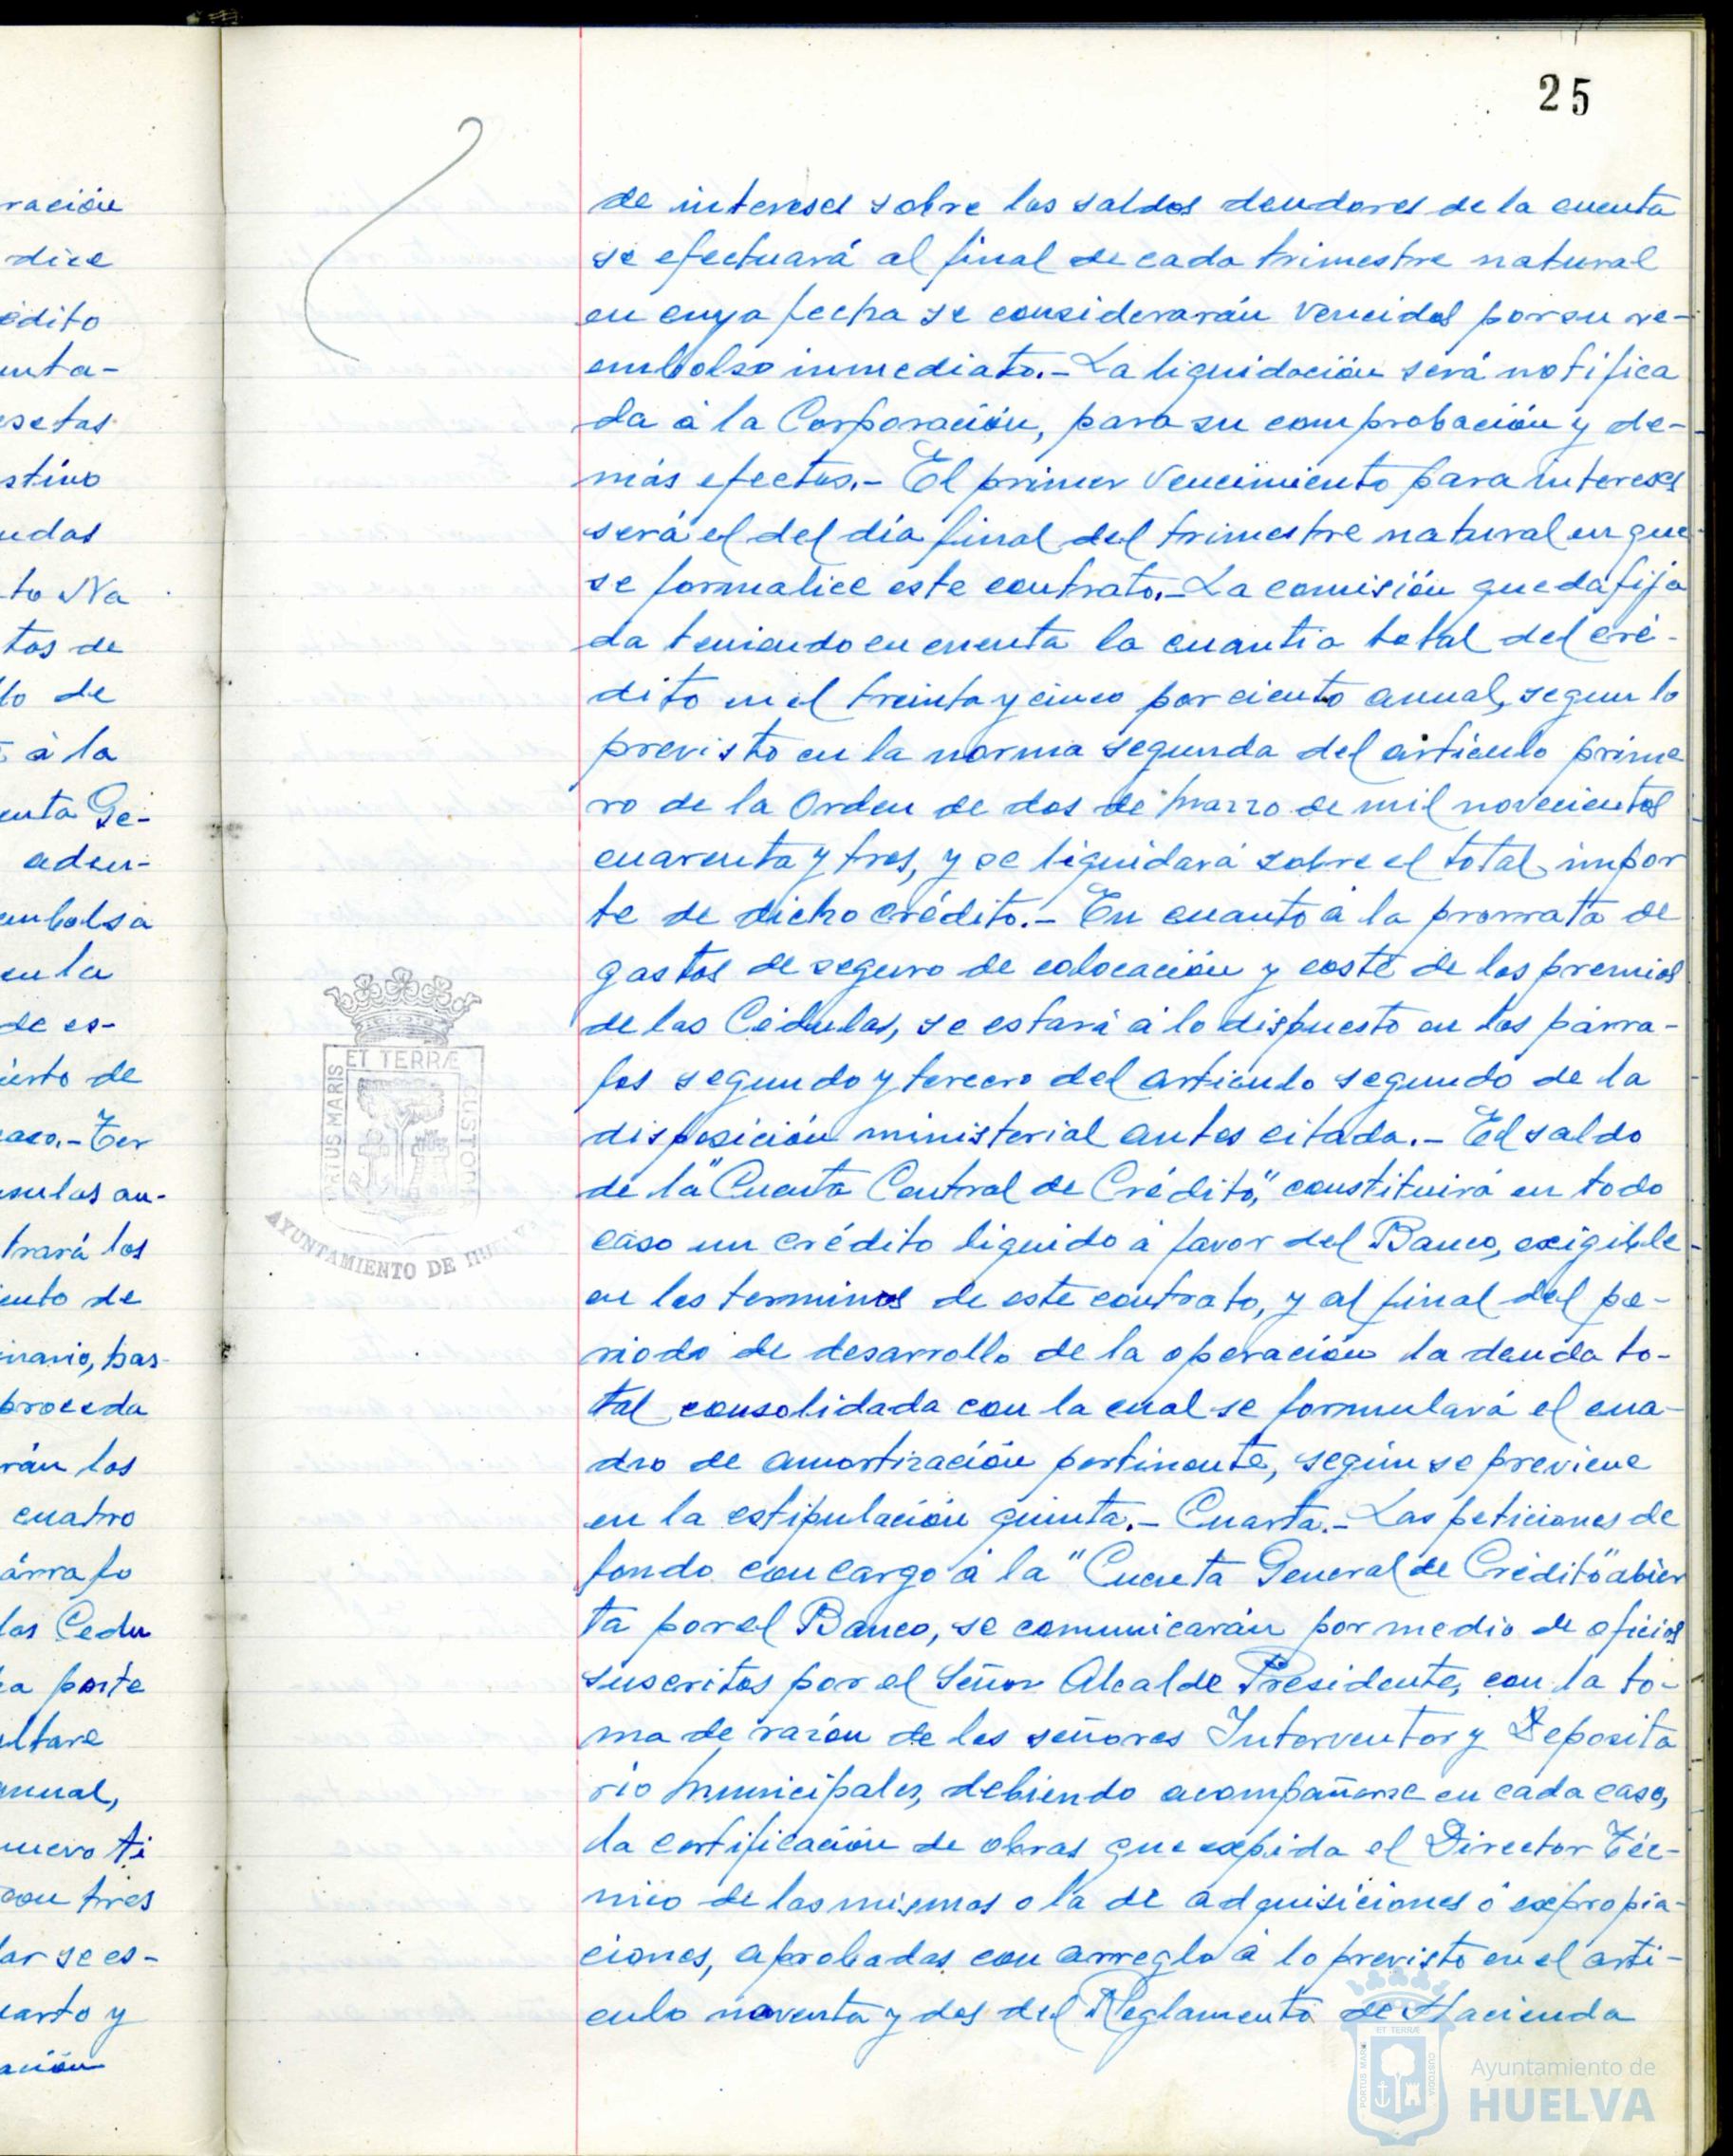 25
ración
dice
édito
enta-
esetas
stino
udas
to Na
tos de
lo de
à la
enta Ge-
adeu-
embolsa
en la
de es-
ierto de
aso.- Ter
sulas an-
trará los
ento de
inario, bas-
proceda
rán los
cuatro
árrafo
las Cedu
a parte
ultare
anual,
nuevo ti
con tres
lar se es-
uarto y
ación
de intereses sobre los saldos deudores de la cuenta
se efectuará al final de cada trimestre natural
en cuya fecha se considerarán vencidos por su re-
embolso inmediato.- La liquidación será notifica
da à la Corporación, para su comprobación y de-
más efectos.- El primer vencimiento para intereses
será el del día final del trimestre natural en que
se formalice este contrato.- La comisión queda fija
da teniendo en cuenta la cuantia total del cré-
dito en el treinta y cinco por ciento anual, segun lo
previsto en la norma segunda del artículo prime
ro de la Orden de dos de Marzo de mil novecientos
cuarenta y tres, y se liquidará sobre el total impor
te de dicho crédito.- En cuanto à la prorrata de
gastos de seguro de colocación y coste de los premios
de las Cédulas, se estará à lo dispuesto en los párra-
fos segundo y tercero del artículo segundo de la
disposición ministerial antes citada.- El saldo
de la "Cuenta Central de Crédito", constituirá en todo
caso un crédito liquido à favor del Banco, exigible
en los terminos de este contrato, y al final del pe-
riodo de desarrollo de la operación la deuda to-
tal consolidada con la cual se formulará el cua-
dro de amortización pertinente, según se previene
en la estipulación quinta.- Cuarta.- Las peticiones de
fondo con cargo à la "Cuenta General de Crédito" abier
ta por el Banco, se comunicarán por medio de oficios
suscritos por el Señor Alcalde Presidente, con la to-
ma de razón de los señores Interventor y Deposita
rio Municipales, debiendo acompañarse en cada caso,
la certificación de obras que expida el Director Téc-
nico de las mismas o la de adquisiciones ó expropia-
ciones, aprobadas con arreglo à lo previsto en el artí-
culo noventa y dos del Reglamento de Hacienda
PORTUS MARIS ET TERRÆ CUSTODIA
AYUNTAMIENTO DE HUELVA
PORTUS MARIS ET TERRÆ CUSTODIA
Ayuntamiento de
HUELVA